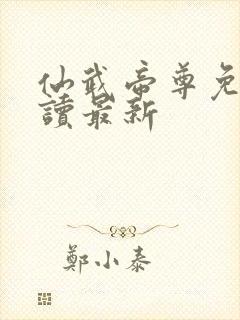 仙武帝尊免
讀最新
鄭小泰